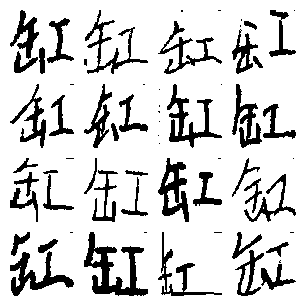 缸缸缸缸
缸缸缸缸
缸缸缸缸
缸缸缸缸